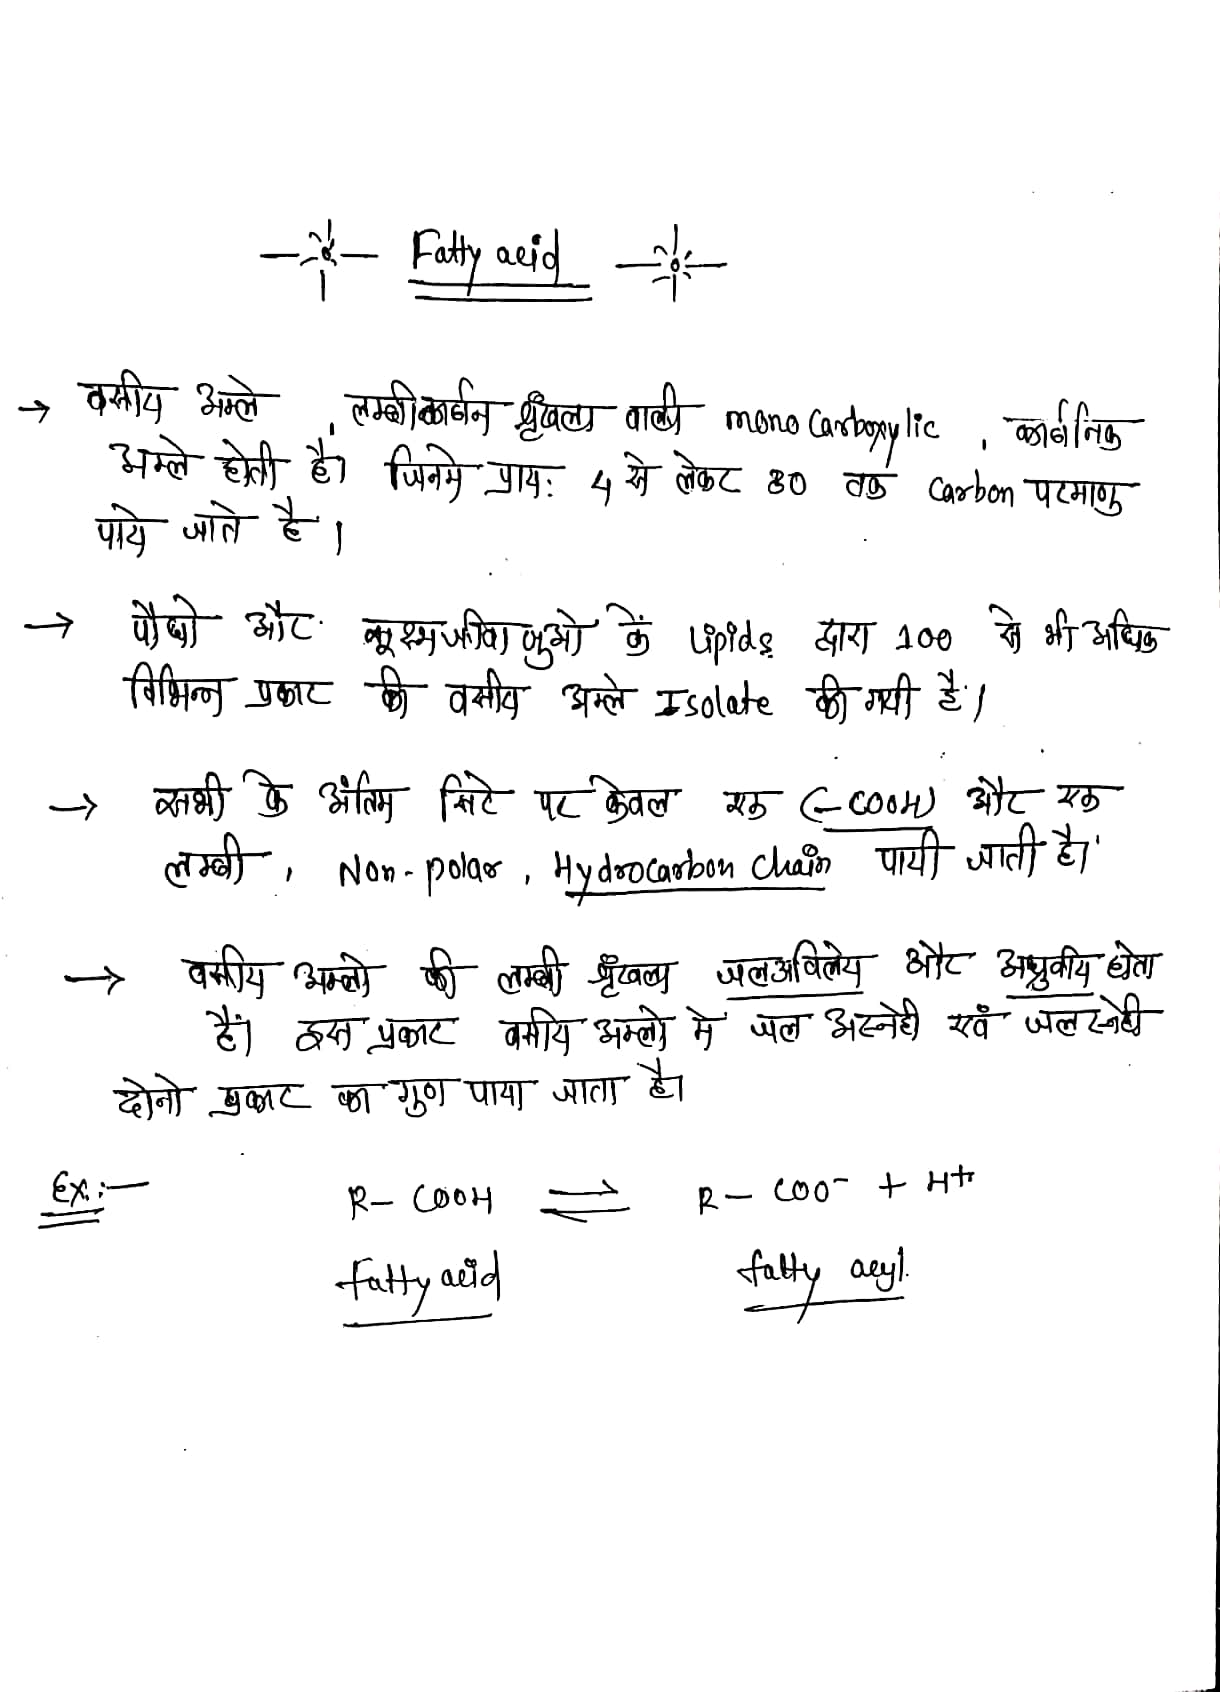 Fatty acid
→ वसीय अम्ले, लम्बी कार्बन श्रृंखला वाली mono Carboxylic, कार्बनिक
अम्ले होती है। जिनमे प्राय: 4 से लेकर 30 तक Carbon परमाणु
पाये जाते है।
→ पौधो और सूक्ष्मजीवाणुओ के Lipids द्वारा 100 से भी अधिक
विभिन्न प्रकार की वसीय अम्ले Isolate की गयी है।
→ सभी के अंतिम सिरे पर केवल एक (-COOH) और एक
लम्बी, Non-polar, Hydrocarbon Chain पायी जाती है।
→ वसीय अम्लो की लम्बी श्रृंखला जलअविलेय और अध्रुवीय होता
है। इस प्रकार वसीय अम्लो मे जल अस्नेही एवं जलस्नेही
दोनो प्रकार का गुण पाया जाता है।
Ex:- R- COOH ⇌ R- COO⁻ + H⁺
Fatty acid fatty acyl.